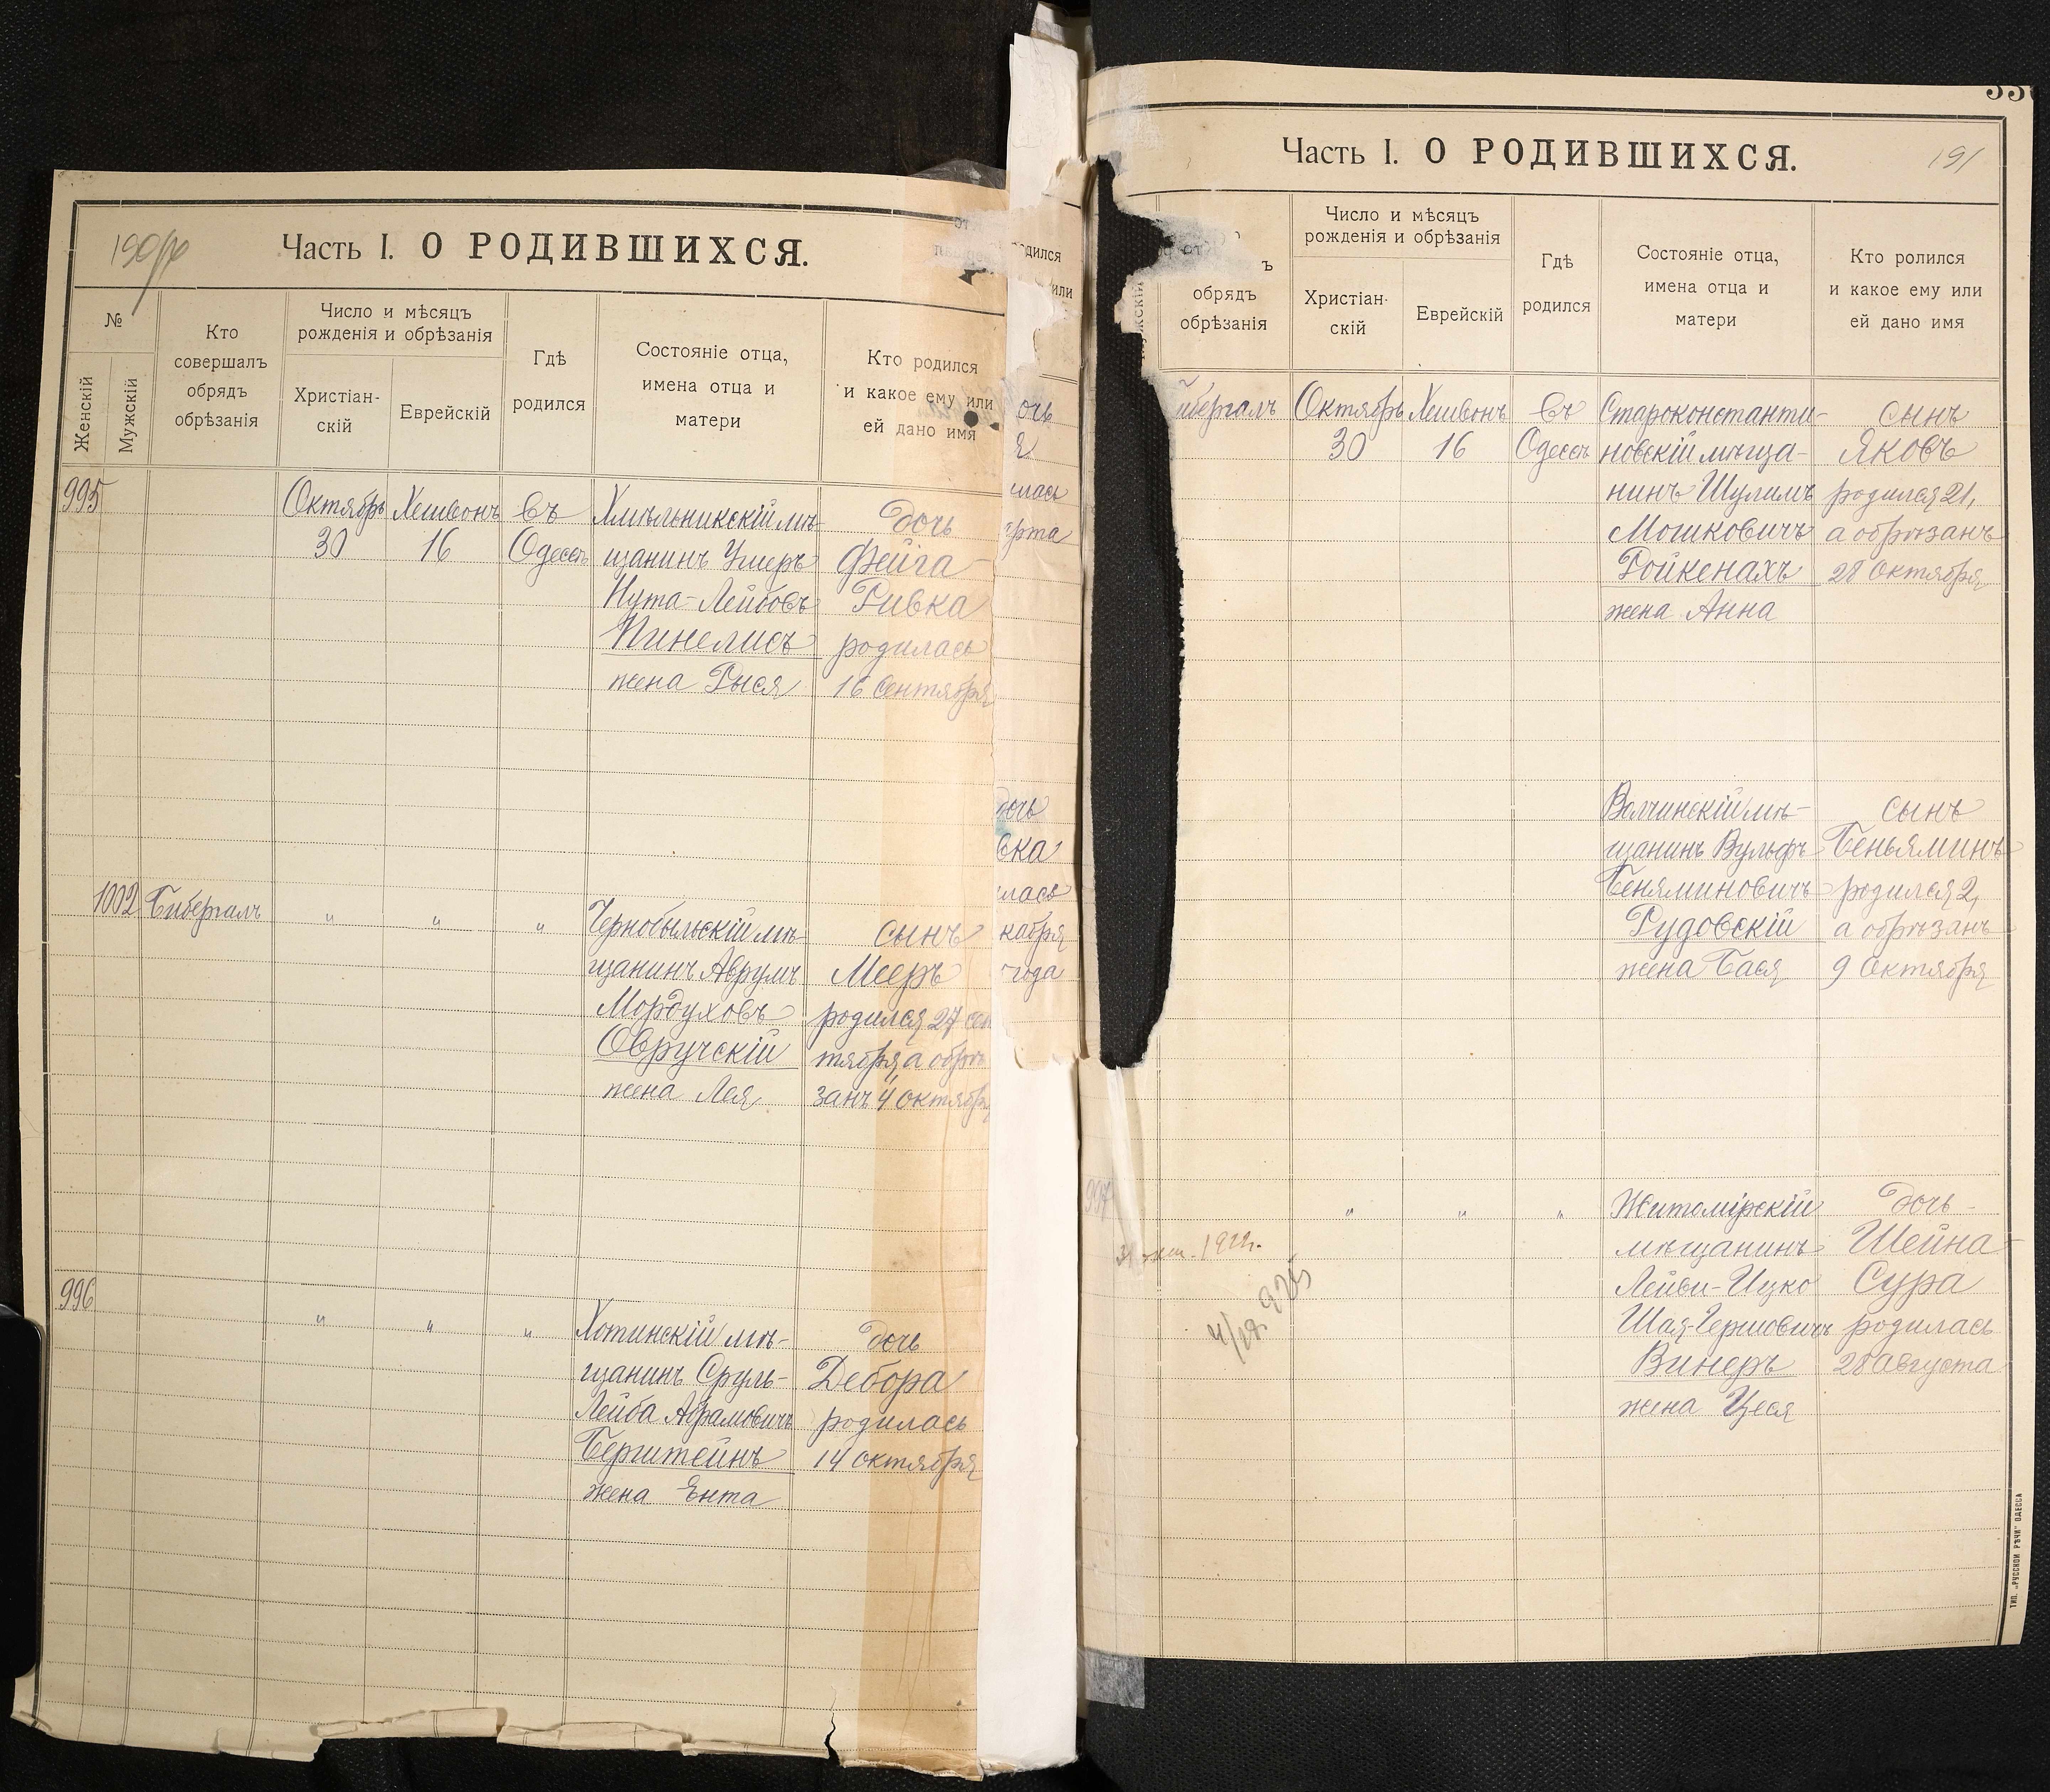 190
Часть I. О РОДИВШИХСЯ.
№
Женскій
Мужскій
Кто
совершалъ
обрядъ
обрѣзанія
Число и мѣсяцъ
рожденія и обрѣзанія
Христіан-
скій
Еврейскій
Гдѣ
родился
Состояніе отца,
имена отца и
матери
Кто родился
и какое ему или
ей дано имя
995
Октябрь
30
Хешвонъ
16
въ
Одессѣ
Хмѣльникскій мѣ-
щанинъ Умеръ
Нута-Лейбовъ
Пинелисъ
жена Рыся
дочь
Фейга-
Ривка
родилась
16 Сентября
1002
Бибергалъ
"
"
"
Чернобыльскій мѣ-
щанинъ Аврумъ
Мордуховъ
Овручскій
жена Лея
сынъ
Мееръ
родился 27 сен
тября, а обрѣ
занъ 4 октября
996
"
"
"
Хотинскій мѣ-
щанинъ Сруль-
Лейба Абрамовичъ
Берштейнъ
жена Ента
дочь
Дебора
родилась
14 октября
одился
или
очь
я
илась
арта
дочь
вка
илась
кабря
года
Часть I. О РОДИВШИХСЯ.
191
обрядъ
обрѣзанія
Число и мѣсяцъ
рожденія и обрѣзанія
Христіан-
скій
Еврейскій
Гдѣ
родился
Состояніе отца,
имена отца и
матери
Кто ролился
и какое ему или
ей дано имя
ибергалъ
Октябрь
30
Хешвонъ
16
въ
Одессѣ
Староконстанти-
новскій мѣща-
нинъ Шулимъ
Мошковичъ
Ройкенахъ
жена Анна
сынъ
Яковъ
родился 21,
а обрѣзанъ
28 Октября
Волчинскій мѣ-
щанинъ Вульфъ
Беняминовичъ
Рудовскій
жена Бася
сынъ
Беньяминъ
родился 2,
а обрѣзанъ
9 Октября
997
"
"
"
Житомірскій
мѣщанинъ
Лейви-Ицко
Шая-Гершовичъ
Винеръ
жена Цеся
дочь
Шейна-
Сура
родилась
28 Августа
ТИП. „РУССКОЙ РѢЧИ" ОДЕССА